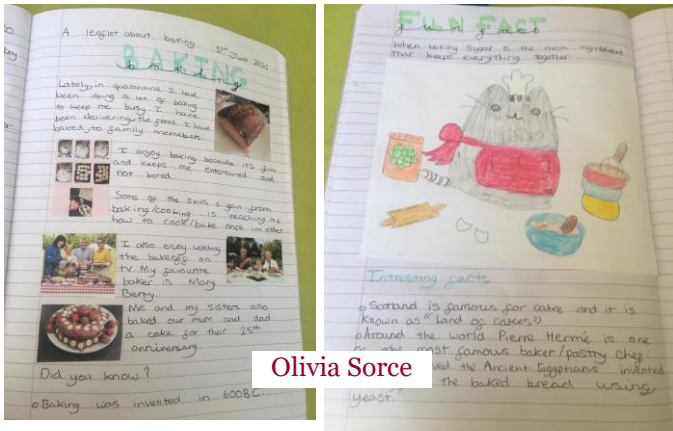 A leaflet about baking 1st June 2020
BAKING
baking
Lataly in quarantine I have
been doing a lot of baking
to keep me busy I have
been delivering the good I have
baked to family memebers.
I enjoy baking because it's fun
and keeps me entertained and
not bored
Some of the skills I gain from
baking/cooking is teaching me
how to cook/bake once im older.
I also enjoy watching
the bakeoff on
tv. My favourite
baker is Mary
Berry.
Me and my sisters also
baked our mum and dad
a cake for their 25th
anniversary
Did you know?
Baking was invented in 600BC.
FUN FACT
fun fact
When baking sugar is the main ingredient
that keeps everything together
Intresting facts
Scotland is famous for cake and it is
known as "Land of cakes"
Around the world Pierre Hermé is one
the most famous baker/pastry chef.
the Ancient Egyptians invented
the baked bread using
yeast.
Olivia Sorce